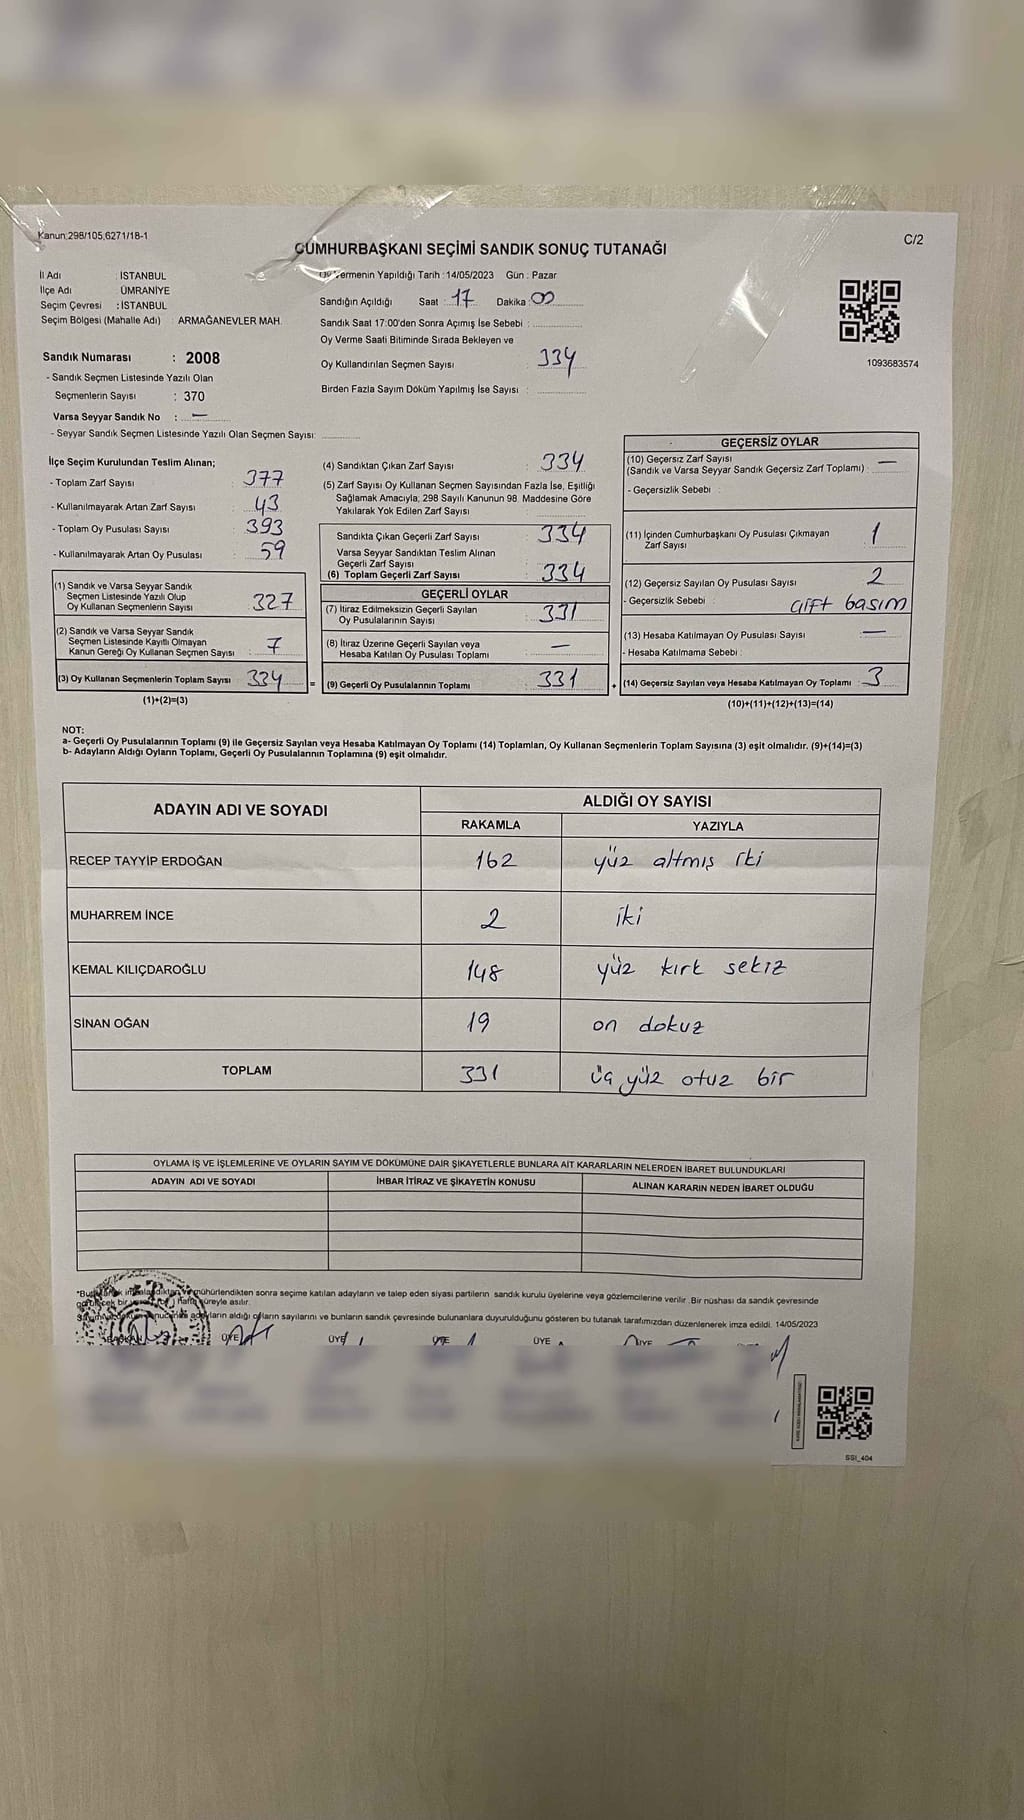 Kanun:298/105,6271/18-1
C/2
CUMHURBAŞKANI SEÇİMİ SANDIK SONUÇ TUTANAĞI
İl Adı : İSTANBUL
İlçe Adı : ÜMRANİYE
Seçim Çevresi : İSTANBUL
Seçim Bölgesi (Mahalle Adı) : ARMAĞANEVLER MAH.
Oy Vermenin Yapıldığı Tarih :14/05/2023 Gün : Pazar
Sandığın Açıldığı Saat : 17 Dakika : 00
Sandık Saat 17:00'den Sonra Açımış İse Sebebi :
Oy Verme Saati Bitiminde Sırada Bekleyen ve
Oy Kullandırılan Seçmen Sayısı : 334
Birden Fazla Sayım Döküm Yapılmış İse Sayısı :
1093683574
Sandık Numarası : 2008
- Sandık Seçmen Listesinde Yazılı Olan
Seçmenlerin Sayısı : 370
Varsa Seyyar Sandık No : —
- Seyyar Sandık Seçmen Listesinde Yazılı Olan Seçmen Sayısı:
İlçe Seçim Kurulundan Teslim Alınan;
- Toplam Zarf Sayısı : 377
- Kullanılmayarak Artan Zarf Sayısı : 43
- Toplam Oy Pusulası Sayısı : 393
- Kullanılmayarak Artan Oy Pusulası : 59
(1) Sandık ve Varsa Seyyar Sandık
Seçmen Listesinde Yazılı Olup
Oy Kullanan Seçmenlerin Sayısı : 327
(2) Sandık ve Varsa Seyyar Sandık
Seçmen Listesinde Kayıtlı Olmayan
Kanun Gereği Oy Kullanan Seçmen Sayısı : 7
(3) Oy Kullanan Seçmenlerin Toplam Sayısı : 334
(1)+(2)=(3)
(4) Sandıktan Çıkan Zarf Sayısı : 334
(5) Zarf Sayısı Oy Kullanan Seçmen Sayısından Fazla İse, Eşitliği
Sağlamak Amacıyla, 298 Sayılı Kanunun 98. Maddesine Göre
Yakılarak Yok Edilen Zarf Sayısı
Sandıkta Çıkan Geçerli Zarf Sayısı : 334
Varsa Seyyar Sandıktan Teslim Alınan
Geçerli Zarf Sayısı
(6) Toplam Geçerli Zarf Sayısı : 334
GEÇERLİ OYLAR
(7) İtiraz Edilmeksizin Geçerli Sayılan
Oy Pusulalarının Sayısı : 331
(8) İtiraz Üzerine Geçerli Sayılan veya
Hesaba Katılan Oy Pusulası Toplamı : —
= (9) Geçerli Oy Pusulalarının Toplamı : 331 +
GEÇERSİZ OYLAR
(10) Geçersiz Zarf Sayısı : —
(Sandık ve Varsa Seyyar Sandık Geçersiz Zarf Toplamı)
- Geçersizlik Sebebi :
(11) İçinden Cumhurbaşkanı Oy Pusulası Çıkmayan
Zarf Sayısı : 1
(12) Geçersiz Sayılan Oy Pusulası Sayısı : 2
- Geçersizlik Sebebi : çift basım
(13) Hesaba Katılmayan Oy Pusulası Sayısı : —
- Hesaba Katılmama Sebebi :
(14) Geçersiz Sayılan veya Hesaba Katılmayan Oy Toplamı : 3
(10)+(11)+(12)+(13)=(14)
NOT:
a- Geçerli Oy Pusulalarının Toplamı (9) ile Geçersiz Sayılan veya Hesaba Katılmayan Oy Toplamı (14) Toplamları, Oy Kullanan Seçmenlerin Toplam Sayısına (3) eşit olmalıdır. (9)+(14)=(3)
b- Adayların Aldığı Oyların Toplamı, Geçerli Oy Pusulalarının Toplamına (9) eşit olmalıdır.
ADAYIN ADI VE SOYADI ALDIĞI OY SAYISI
RAKAMLA YAZIYLA
RECEP TAYYİP ERDOĞAN 162 yüz altmış iki
MUHARREM İNCE 2 iki
KEMAL KILIÇDAROĞLU 148 yüz kırk sekiz
SİNAN OĞAN 19 on dokuz
TOPLAM 331 üç yüz otuz bir
OYLAMA İŞ VE İŞLEMLERİNE VE OYLARIN SAYIM VE DÖKÜMÜNE DAİR ŞİKAYETLERLE BUNLARA AİT KARARLARIN NELERDEN İBARET BULUNDUKLARI
ADAYIN ADI VE SOYADI İHBAR İTİRAZ VE ŞİKAYETİN KONUSU ALINAN KARARIN NEDEN İBARET OLDUĞU
mühürlendikten sonra seçime katılan adayların ve talep eden siyasi partilerin sandık kurulu üyelerine veya gözlemcilerine verilir .Bir nüshası da sandık çevresinde
bir hafta süreyle asılır.
adayların aldığı oyların sayılarını ve bunların sandık çevresinde bulunanlara duyurulduğunu gösteren bu tutanak tarafımızdan düzenlenerek imza edildi. 14/05/2023
BAŞKAN ÜYE ÜYE ÜYE ÜYE ÜYE
SSI_404